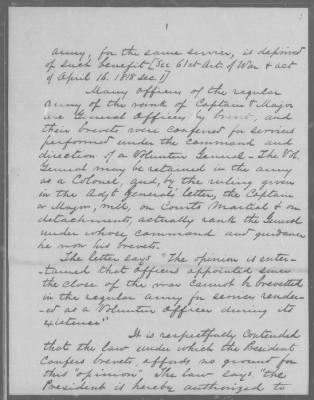 army, for the same service, is deprived
of such benefit [See 61st Art. of War & act
of April 16. 1818 Sec 1]
Many officers of the regular
army of the rank of Captain & Major
are General Officers by brevet, and
their brevets were conferred for services
performed under the command and
direction of a Volunteer General - The Vol.
General may be retained in the army
as a Colonel, and, by the ruling given
in the Adjt. Generals' letter, the Captain
or Major, will, on Courts Martial & on
detachments, actually rank the General
under whose command and guidance
he won his brevets.
The letter says "The opinion is enter-
-tained that officers appointed since
the close of the war cannot be brevetted
in the regular army for services render-
-ed as a Volunteer Officer during its
existence"
It is respectfully contended
that the law under which the President
confers brevets, affords no ground for
this "opinion". The law says "the
President is hereby authorized to